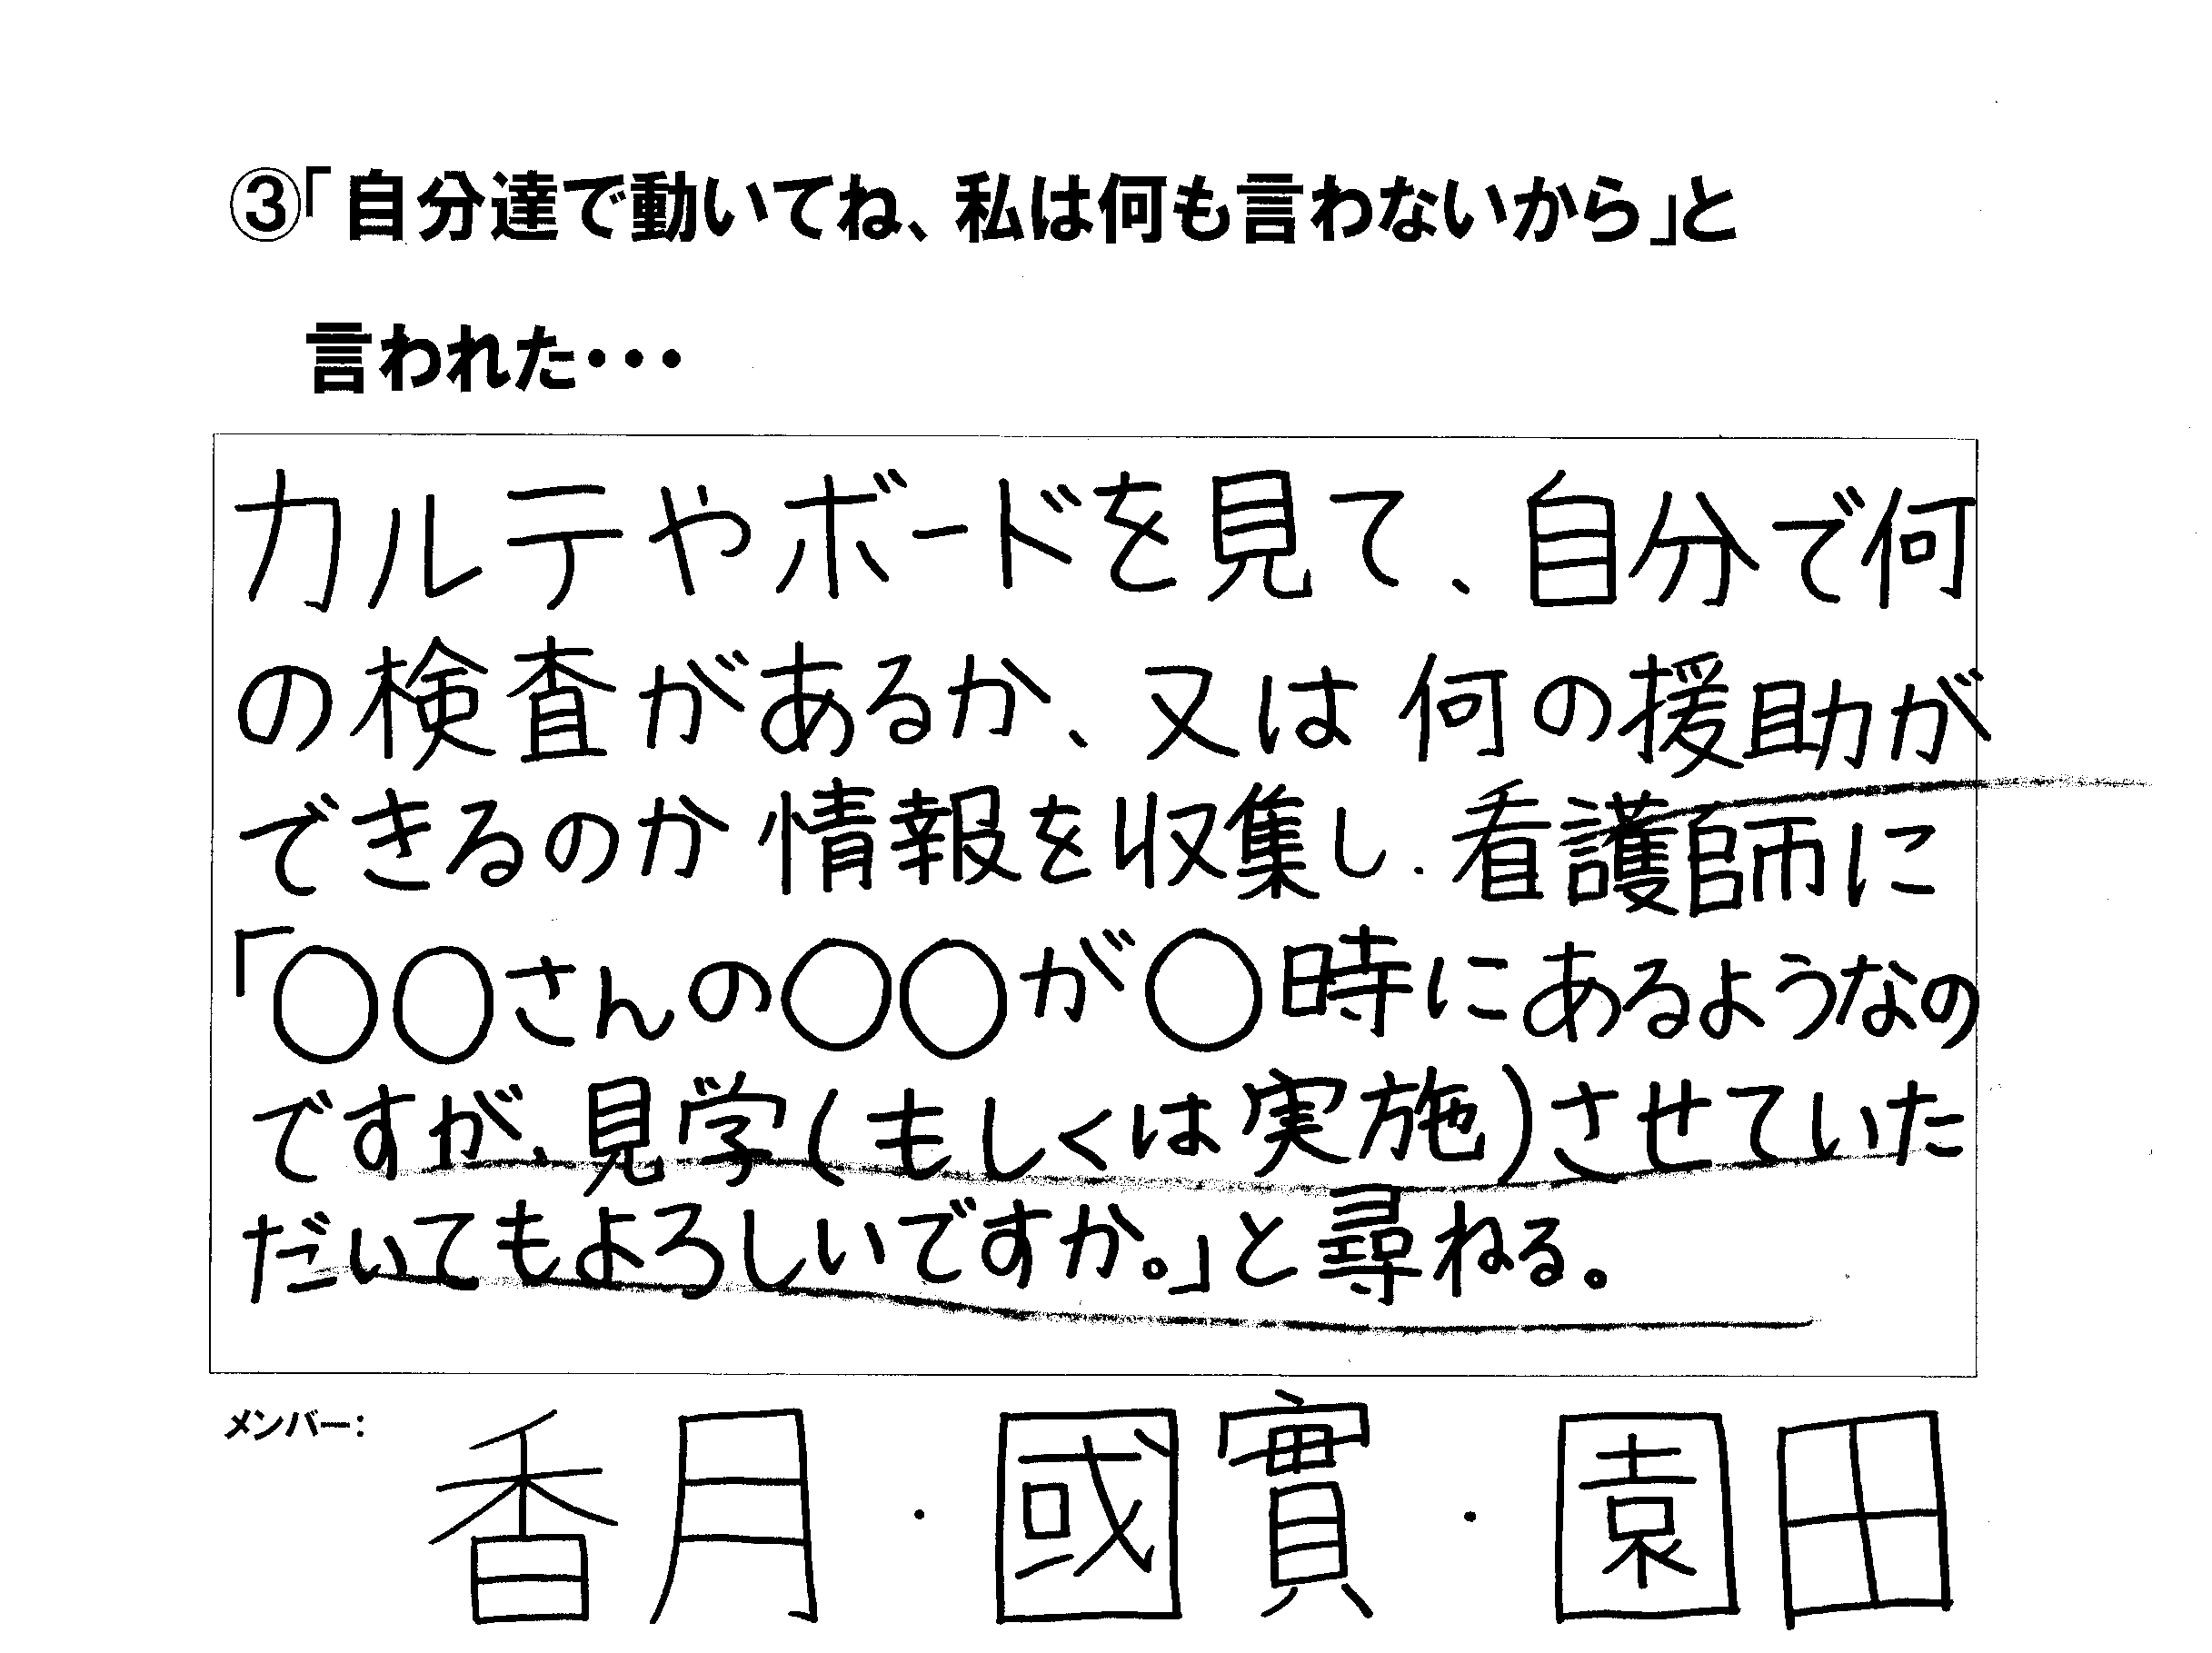 ③「自分達で動いてね、私は何も言わないから」と
言われた・・・
カルテやボードを見て、自分で何
の検査があるか、又は何の援助が
できるのか情報を収集し、看護師に
「○○さんの○○が○時にあるようなの
ですが、見学(もしくは実施)させていた
だいてもよろしいですか。」と尋ねる。
メンバー: 香月・國實・園田